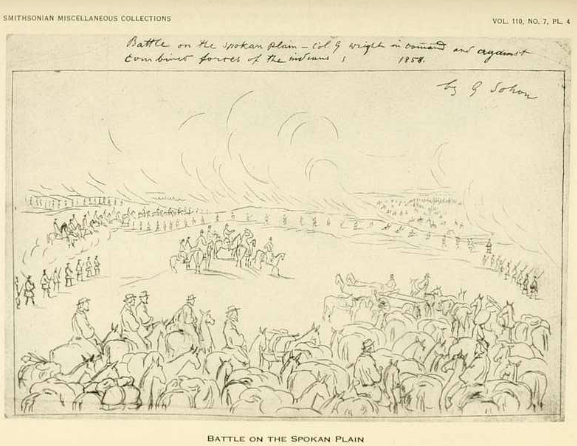 SMITHSONIAN MISCELLANEOUS COLLECTIONS
VOL. 119, NO. 7, PL. 4
Battle on the Spokan Plain – Col G Wright in comand and against
Combined forces of the indians 1858.
by G Sohon
BATTLE ON THE SPOKAN PLAIN